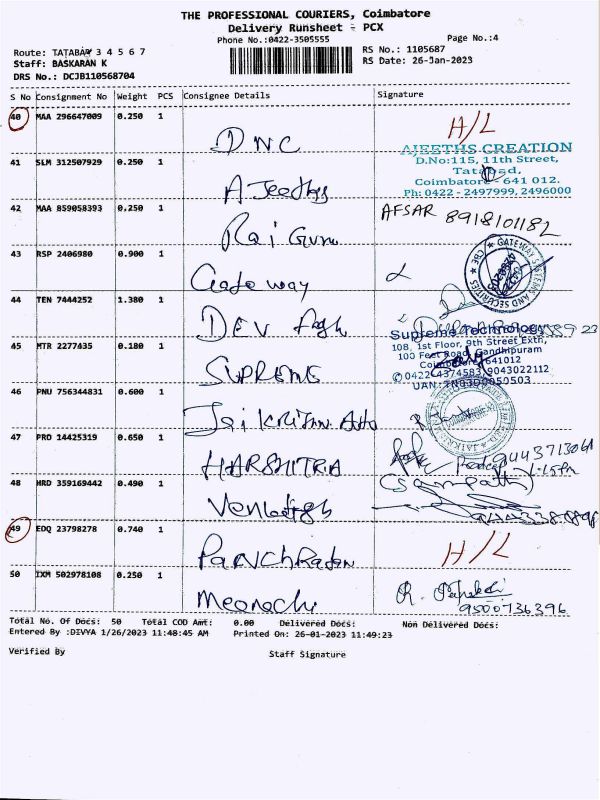 THE PROFESSIONAL COURIERS, Coimbatore
Delivery Runsheet - PCX
Phone No.:0422-3505555
Page No.:4
Route: TATABAD 3 4 5 6 7
RS No.: 1105687
Staff: BASKARAN K
RS Date: 26-Jan-2023
DRS No.: DCJB110568704
S No Consignment No Weight PCS Consignee Details Signature
40 MAA 296647009 0.250 1
DNC H/L
AJEETHS CREATION
D.No:115, 11th Street,
Tatabad,
Coimbatore - 641 012.
Ph: 0422 - 2497999, 2496000
41 SLM 312507929 0.250 1
AJeeths
42 MAA 859058393 0.250 1
Rai Guru AFSAR 8918101182
43 RSP 2406980 0.900 1
Gate way
GATEWAY SYSTEMS AND SECURITIES ★ CBE ★
44 TEN 7444252 1.380 1
DEV
Supreme Technology
108, 1st Floor, 9th Street Extn,
100 Feet Road, Gandhipuram
Coimbatore - 641012
45 MTR 2277435 0.180 1
SUPREME
46 PNU 756344831 0.600 1
Jai Krishna Auto
47 PRO 14425319 0.650 1
HARSHITHA
48 HRD 359169442 0.490 1
Venkatesh
(Sampath)
49 EDQ 23798278 0.740 1
H/L
50 IXM 502978108 0.250 1
Meenachi
9500736396
Total No. Of Docs: 50 Total COD Amt: 0.00 Delivered Docs: Non Delivered Docs:
Entered By :DIVYA 1/26/2023 11:48:45 AM Printed On: 26-01-2023 11:49:23
Verified By Staff Signature